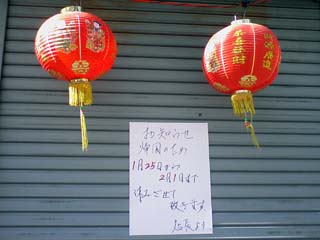 お知らせ
帰国のため
1月25日から
2月1日まで
休みさせて
致きます
店長より
恭喜發財